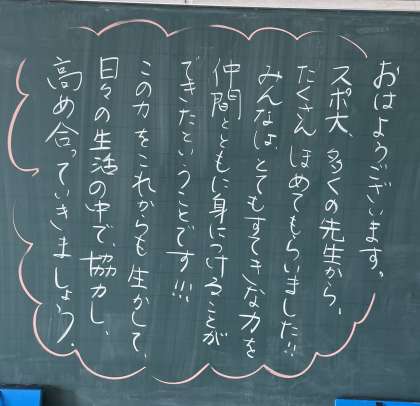 おはようございます。
スポ大、多くの先生から、
たくさんほめてもらいました!!
みんなはとてもすてきな力を
仲間とともに身につけることが
できたということです!!!
この力をこれからも生かして、
日々の生活の中で、協力し、
高め合っていきましょう。